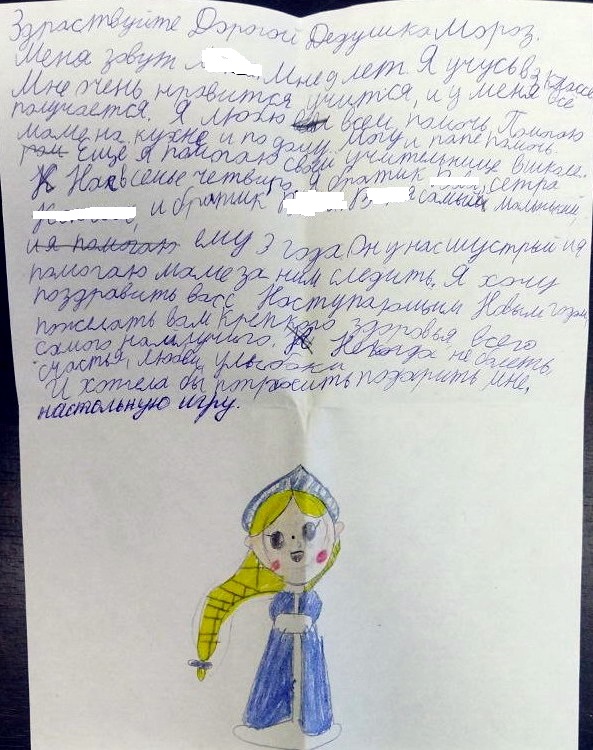 Здраствуйте Дорогой Дедушка Мороз.
Меня зовут Мне 9 лет. Я учусь в 3 классе
Мне очень нравится учится, и у меня всё
получается. Я люблю всем помочь. Помогаю
маме на кухне и по дому. Могу и папе помочь.
Ещё я помогаю своей учительнице в школе.
Нас в семье четверо, я братик сестра
и братик самый маленький,
и я помогаю ему 3 года Он у нас шустрый и я
помогаю маме за ним следить. Я хочу
поздравить вас с Наступающим Новым годом,
пожелать вам крепкого здоровья, всего
самого наилучшего. Некогда не болеть,
счастья, любви, улыбоки
И хотела бы попросить подарить мне,
настольную игру.